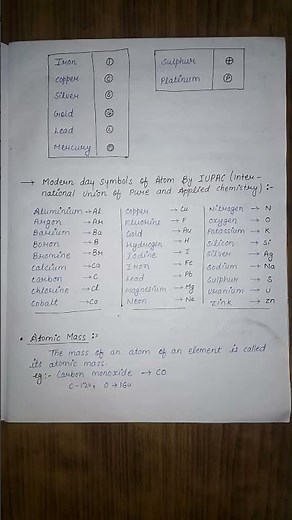 Iron Ⓘ
Copper Ⓒ
Silver Ⓢ
Gold Ⓖ
Lead Ⓛ
Mercury
Sulphur ⊕
Platinum Ⓟ
→ Modern day symbols of Atom By IUPAC (Inter-
national Union of Pure and Applied chemistry) :-
Aluminium → Al
Argon → Ar
Barium → Ba
Boron → B
Bromine → Br
Calcium → Ca
Carbon → C
Chlorine → Cl
Cobalt → Co
Copper → Cu
Fluorine → F
Gold → Au
Hydrogen → H
Iodine → I
Iron → Fe
Lead → Pb
Magnesium → Mg
Neon → Ne
Nitrogen → N
Oxygen → O
Potassium → K
Silicon → Si
Silver → Ag
Sodium → Na
Sulphur → S
Uranium → U
Zink → Zn
• Atomic Mass :-
The mass of an atom of an element is called
its atomic mass.
eg:- Carbon monoxide → CO
C-12u, O→16u